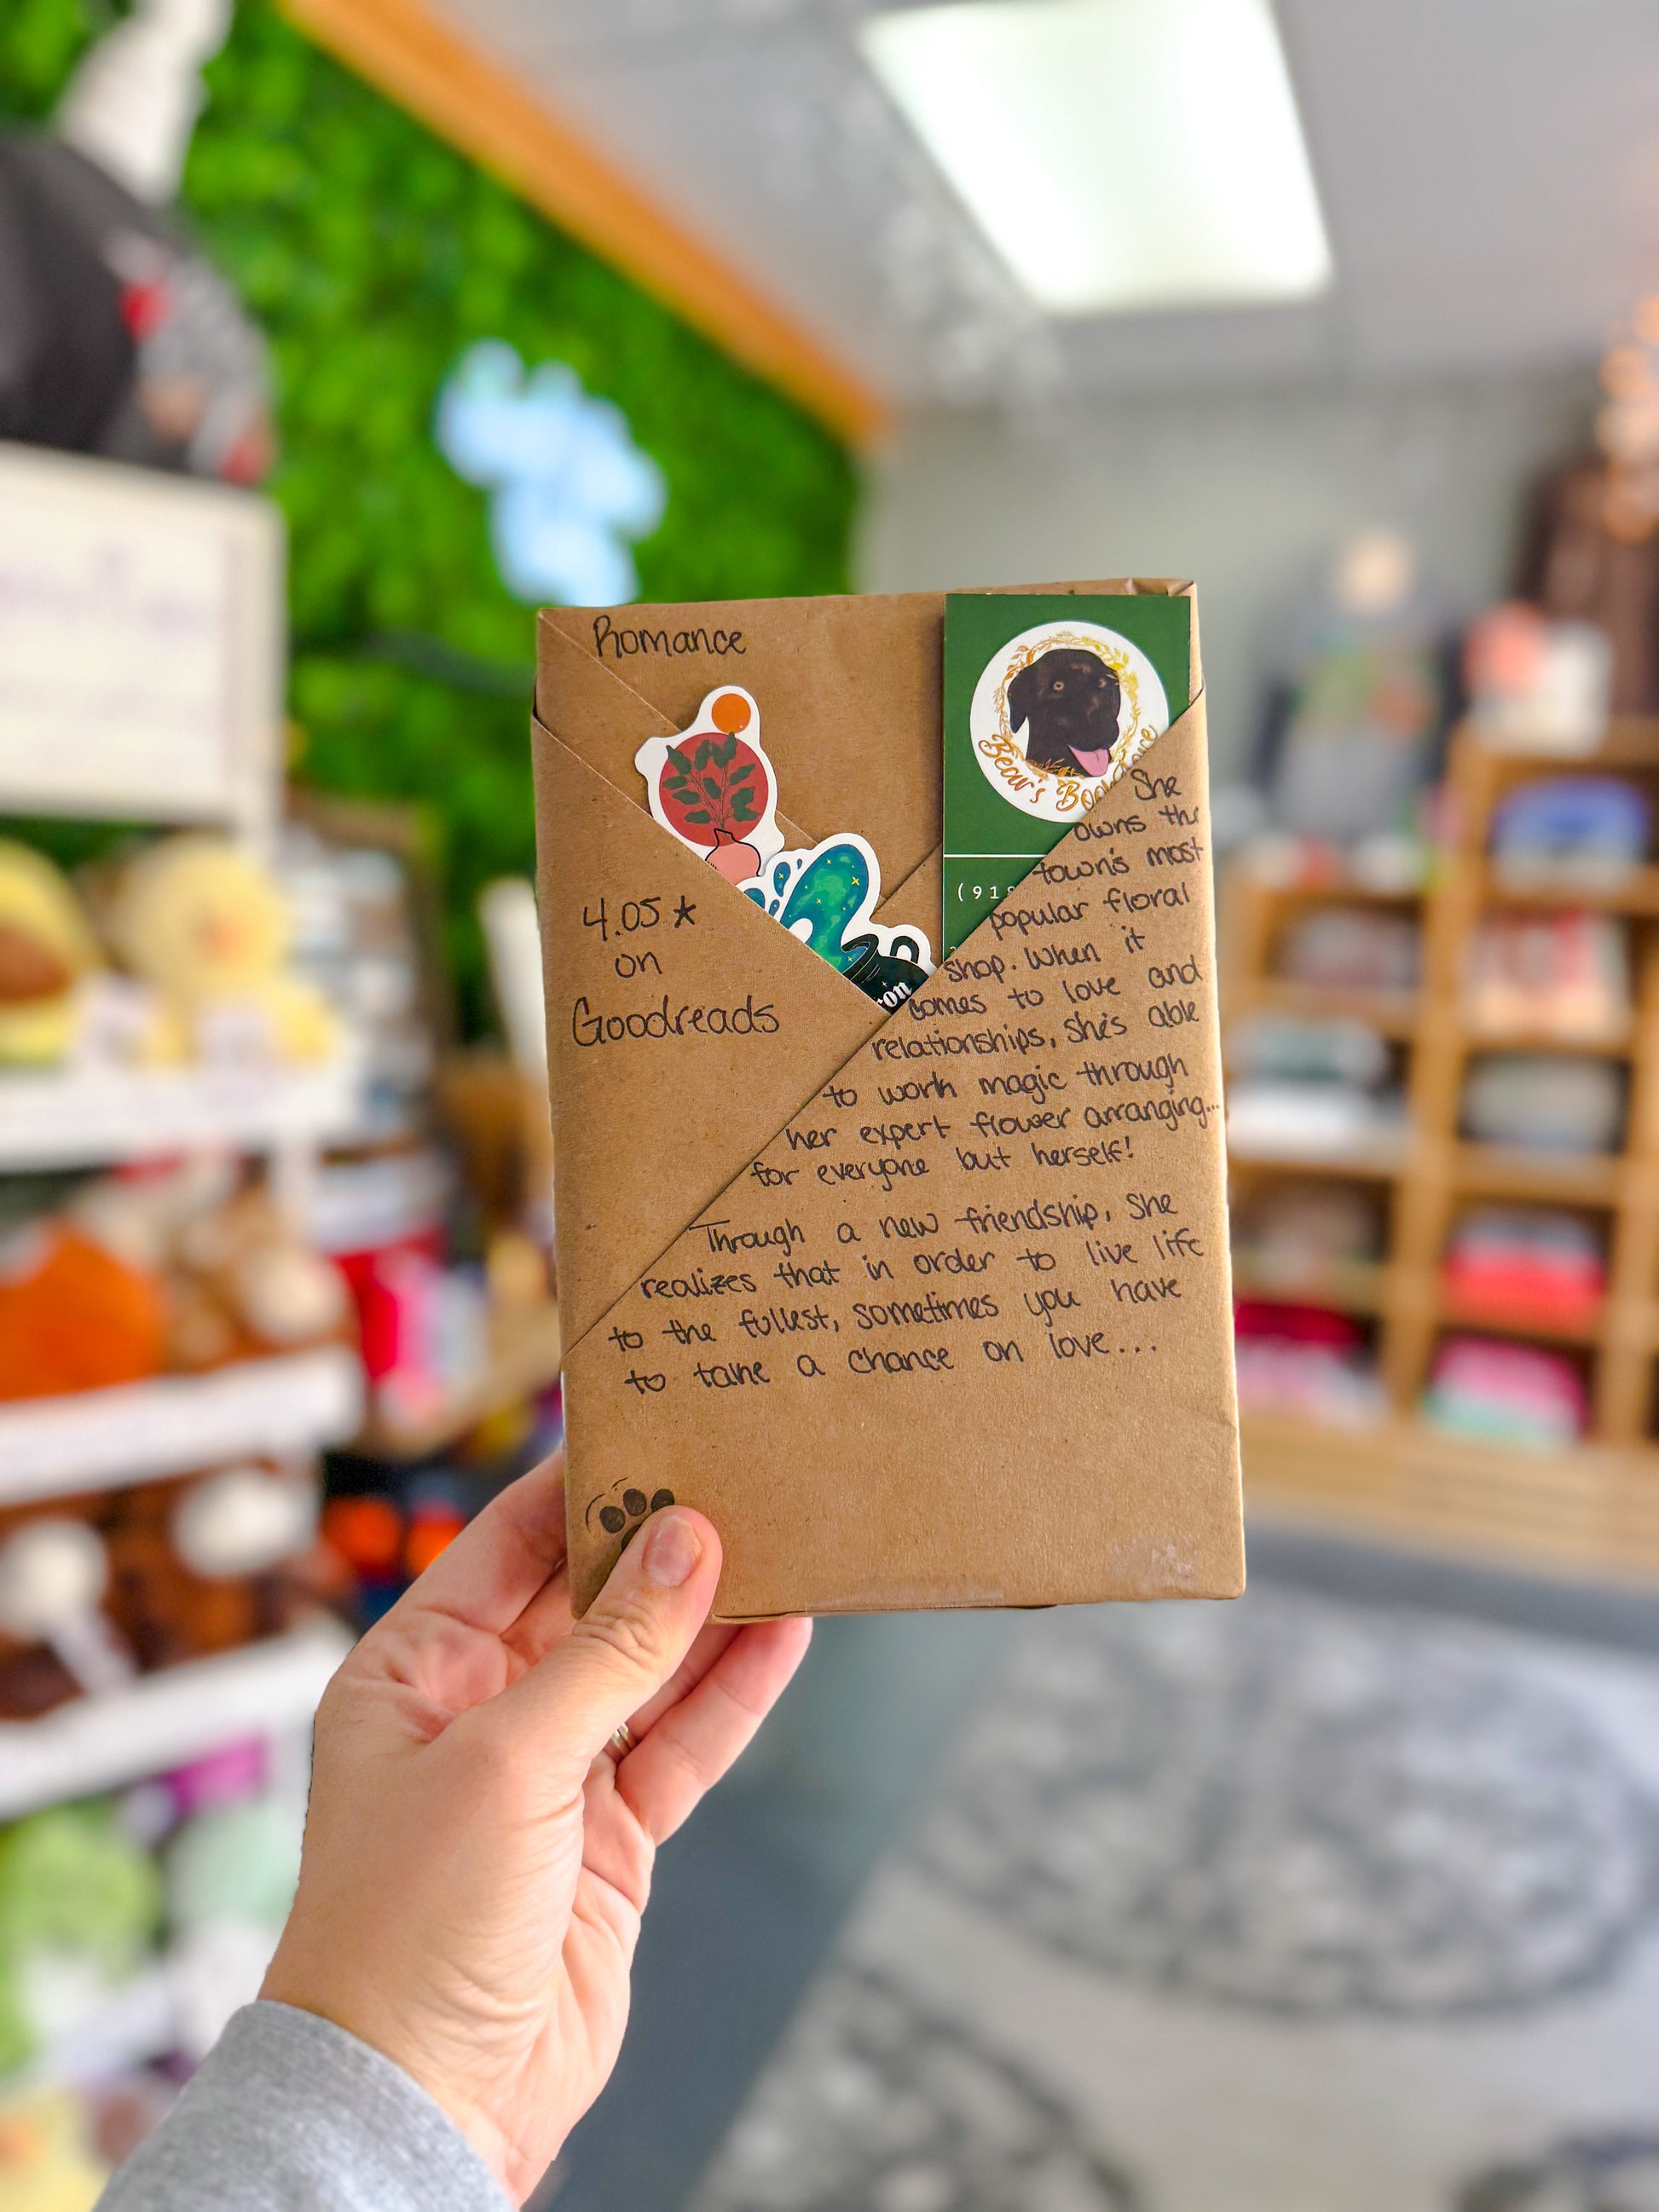 Romance
Bear's
(918
4.05 ★
on
Goodreads
on
She
owns the
town's most
popular floral
shop. When it
comes to love and
relationships, she's able
to work magic through
her expert flower arranging...
for everyone but herself!
Through a new friendship, she
realizes that in order to live life
to the fullest, sometimes you have
to take a chance on love...